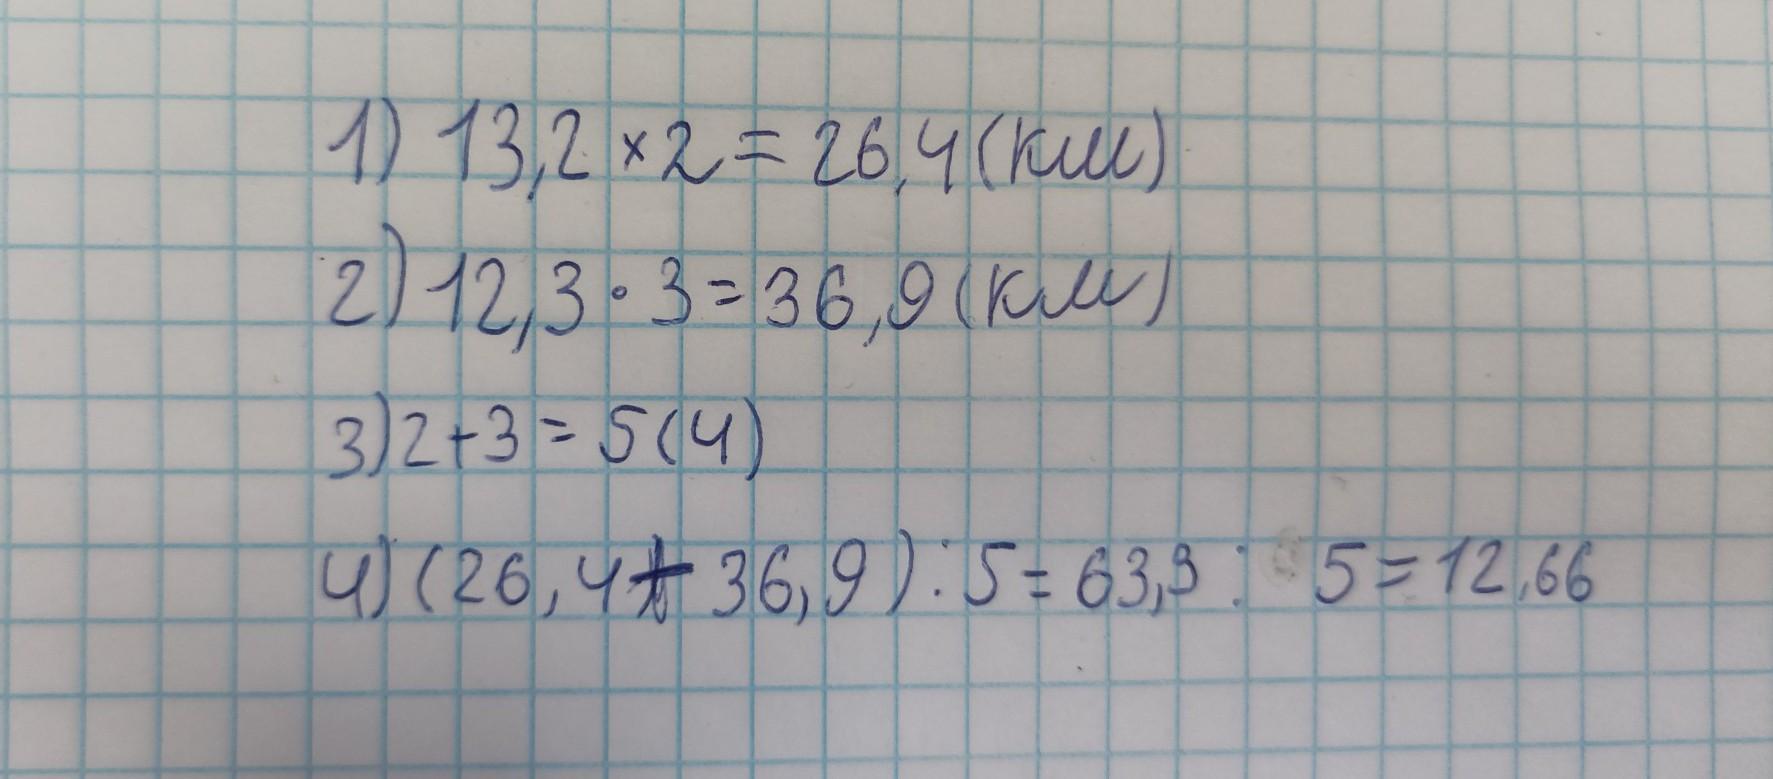 1) 13,2 × 2 = 26,4 (км)
2) 12,3 · 3 = 36,9 (км)
3) 2 + 3 = 5 (ч)
4) (26,4 + 36,9) : 5 = 63,3 : 5 = 12,66